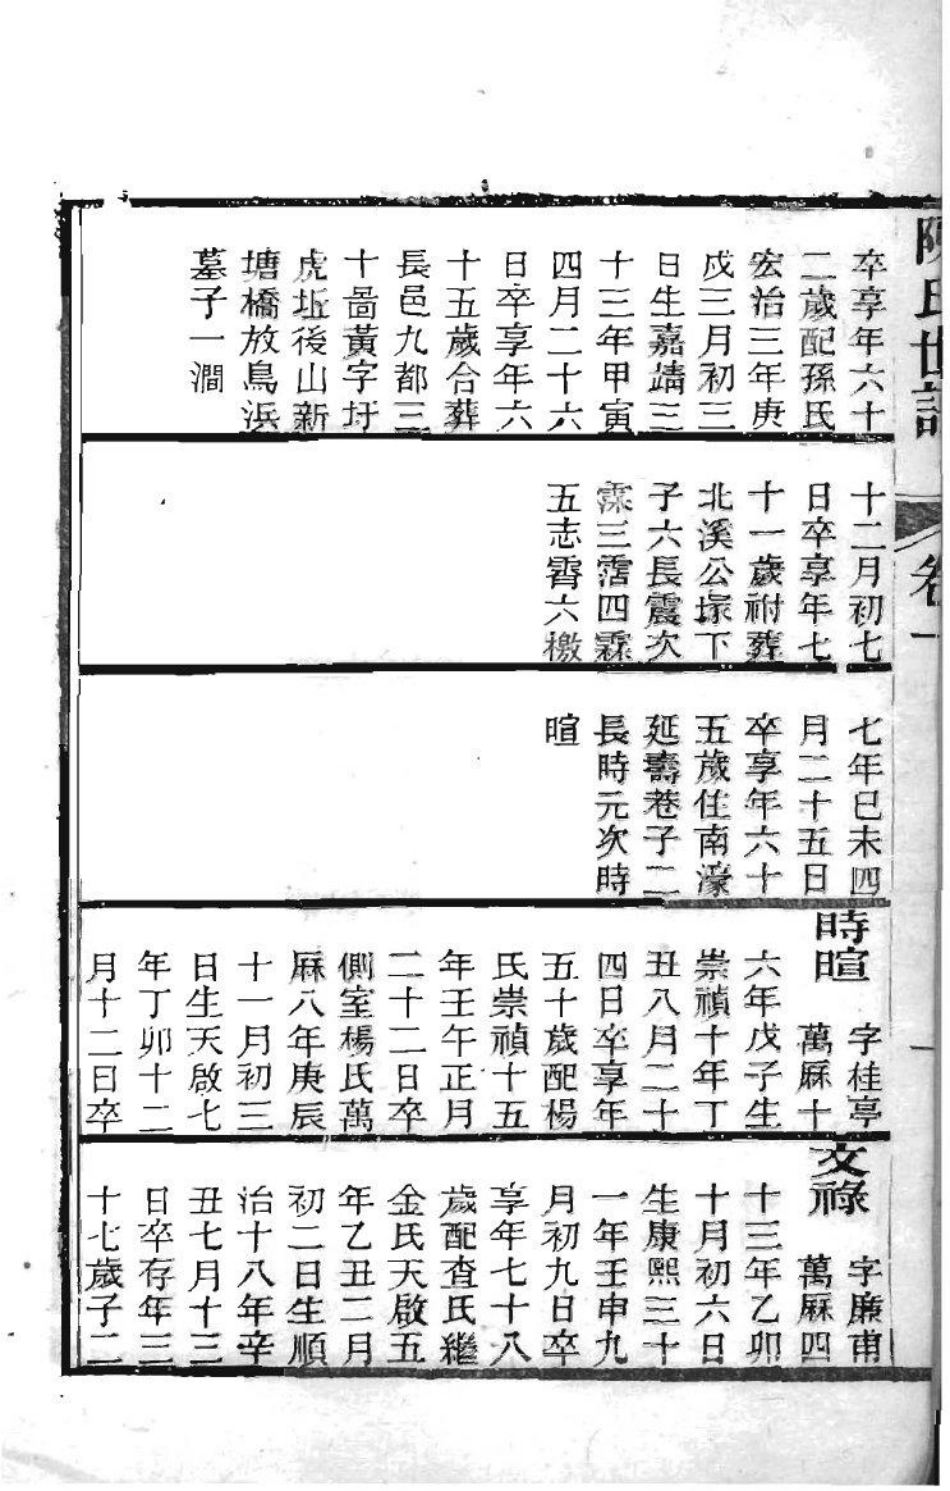 陳氏世譜
卷一
一
卒享年六十
二歲配孫氏
宏治三年庚
戌三月初三
日生嘉靖三
十三年甲寅
四月二十六
日卒享年六
十五歲合葬
長邑九都三
十啚黃字圩
虎坵後山新
塘橋放鳥浜
墓子一澗
十二月初七
日卒享年七
十一歲祔葬
北溪公塚下
子六長震次
霂三霑四霖
五志霄六檄
七年巳未四
月二十五日
卒享年六十
五歲住南濠
延壽巷子二
長時元次時
暄
時暄 字桂亭
萬厤十
六年戊子生
崇禎十年丁
丑八月二十
四日卒享年
五十歲配楊
氏崇禎十五
年壬午正月
二十二日卒
側室楊氏萬
厤八年庚辰
十一月初三
日生天啟七
年丁卯十二
月十二日卒
文祿 字廉甫
萬厤四
十三年乙卯
十月初六日
生康熙三十
一年壬申九
月初九日卒
享年七十八
歲配查氏繼
金氏天啟五
年乙丑二月
初二日生順
治十八年辛
丑七月十三
日卒存年三
十七歲子二